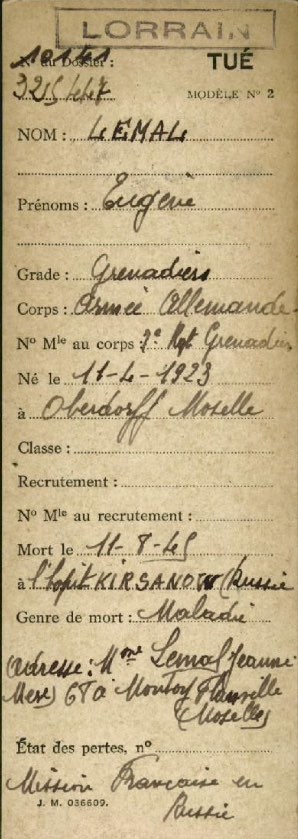 LORRAIN
N° du Dossier : TUÉ
10141
325447 MODÈLE N° 2
NOM : LEMAL
Prénoms : Eugène
Grade : Grenadiers
Corps : Armée Allemande
N° Mle au corps : 7e Rgt Grenadiers
Né le 11-4-1923
à Oberdorff Moselle
Classe :
Recrutement :
N° Mle au recrutement :
Mort le 11-8-45
à l'hopit KIRSANOW (Russie
Genre de mort : Maladie
(Adresse : Mme Lemal Jeanne
Mère) à Montoy Flanville
(Moselle)
État des pertes, n°
Mission Française en
Russie
J. M. 036609.